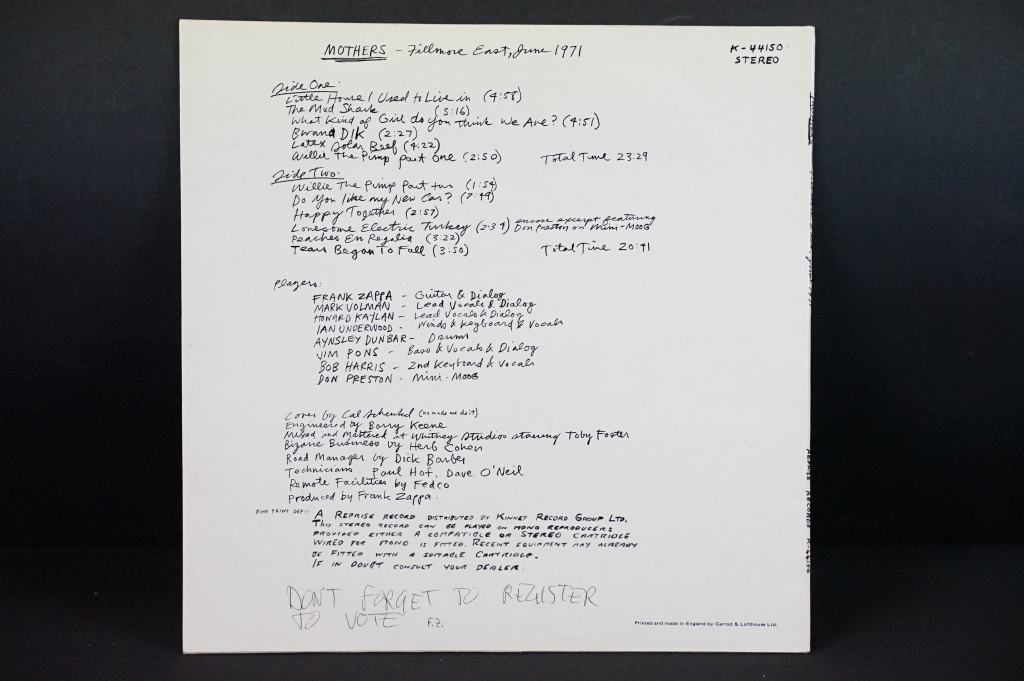 MOTHERS - Fillmore East, June 1971
K-44150
STEREO
Side One:
Little House I Used to Live in (4:58)
The Mud Shark (5:16)
What Kind of Girl do you think We Are? (4:51)
Bwana Dik (2:27)
Latex Solar Beef (4:22)
Willie The Pimp part one (2:50) Total Time 23:29
Side Two:
Willie The Pimp Part two (1:54)
Do You like my New Car? (7:49)
Happy Together (2:57)
Lonesome Electric Turkey (2:34) encore excerpt featuring
Don Preston on Mini-Moog
Peaches En Regalia (3:22)
Tears Began To Fall (3:50) Total Time 20:41
Players:
FRANK ZAPPA - Guitar & Dialog
MARK VOLMAN - Lead Vocals & Dialog
HOWARD KAYLAN - Lead Vocals & Dialog
IAN UNDERWOOD - Winds & keyboard & vocals
AYNSLEY DUNBAR - Drums
JIM PONS - Bass & Vocals & Dialog
BOB HARRIS - 2nd Keyboard & Vocals
DON PRESTON - Mini-Moog
Cover by Cal Schenkel (he made me do it)
Engineered by Barry Keene
Mixed and Mastered at Whitney Studios starring Toby Foster
Bizarre Business by Herb Cohen
Road Manager by Dick Barber
Technicians Paul Hof, Dave O'Neil
Remote Facilities by Fedco
Produced by Frank Zappa.
FINE PRINT DEPT: A REPRISE RECORD DISTRIBUTED BY KINNEY RECORD GROUP LTD.
THIS STEREO RECORD CAN BE PLAYED ON MONO REPRODUCERS
PROVIDED EITHER A COMPATIBLE OR STEREO CARTRIDGE
WIRED FOR MONO IS FITTED. RECENT EQUIPMENT MAY ALREADY
BE FITTED WITH A SUITABLE CARTRIDGE.
IF IN DOUBT CONSULT YOUR DEALER.
DON'T FORGET TO REGISTER
TO VOTE F.Z.
Printed and made in England by Garrod & Lofthouse Ltd.
REPRISE RECORDS K-44150